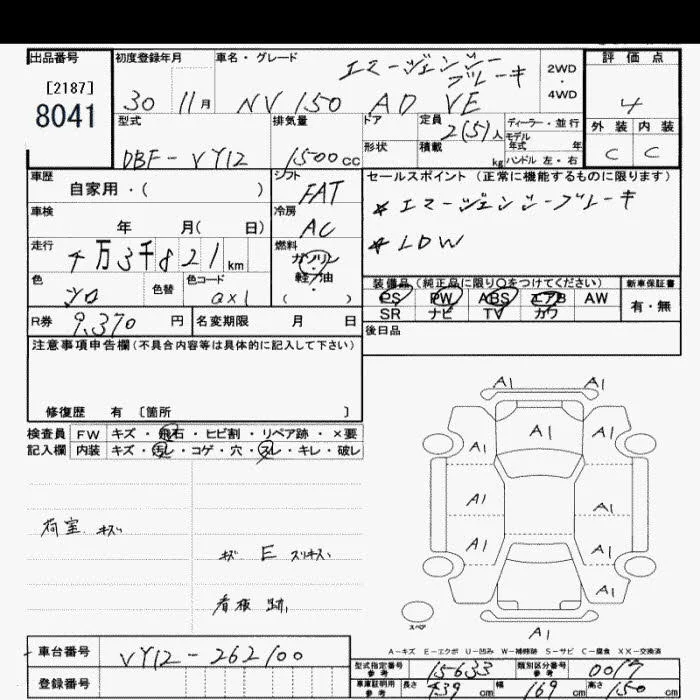 出品番号 初度登録年月 車名・グレード エマージェンシーブレーキ 2WD・4WD 評価点
[2187]
8041
30 11月 NV 150 AD VE 4
型式 排気量 ドア 定員 2(5)人 ディーラー・並行 外装 内装
モデル
年式 年
DBF-VY12 1500cc 形状 積載 kg ハンドル 左・右 C C
車歴 シフト セールスポイント(正常に機能するものに限ります)
自家用・( ) FAT * エマージェンシーブレーキ
車検 冷房
年 月( 日) AC * LDW
走行 燃料
万3千821km ガソリン・軽油
色 色替 色コード ( ) 装備品(純正品に限り○をつけてください) 新車保証書
シロ QX1 PS PW ABS エアB AW 有・無
SR ナビ TV カワ
R券 9,370円 名変期限 月 日 後日品
注意事項申告欄(不具合内容等は具体的に記入して下さい)
修復歴 有 〔箇所 〕
検査員 FW キズ・飛石・ヒビ割・リペア跡・×要
記入欄 内装 キズ・汚レ・コゲ・穴・スレ・キレ・破レ
A1 A1
A1 A1 A1
A1 A1
A1 A1
A1
A1
荷室 キズ
キズ E スリキズ
看板跡
スペア
A-キズ E-エクボ U-凹み W-補修跡 S-サビ C-腐食 XX-交換済
車台番号 VY12-262100
登録番号
型式指定番号 参考 15633 類別区分番号 参考 0017
車庫証明用 参考 長さ 439cm 幅 169cm 高さ 150cm